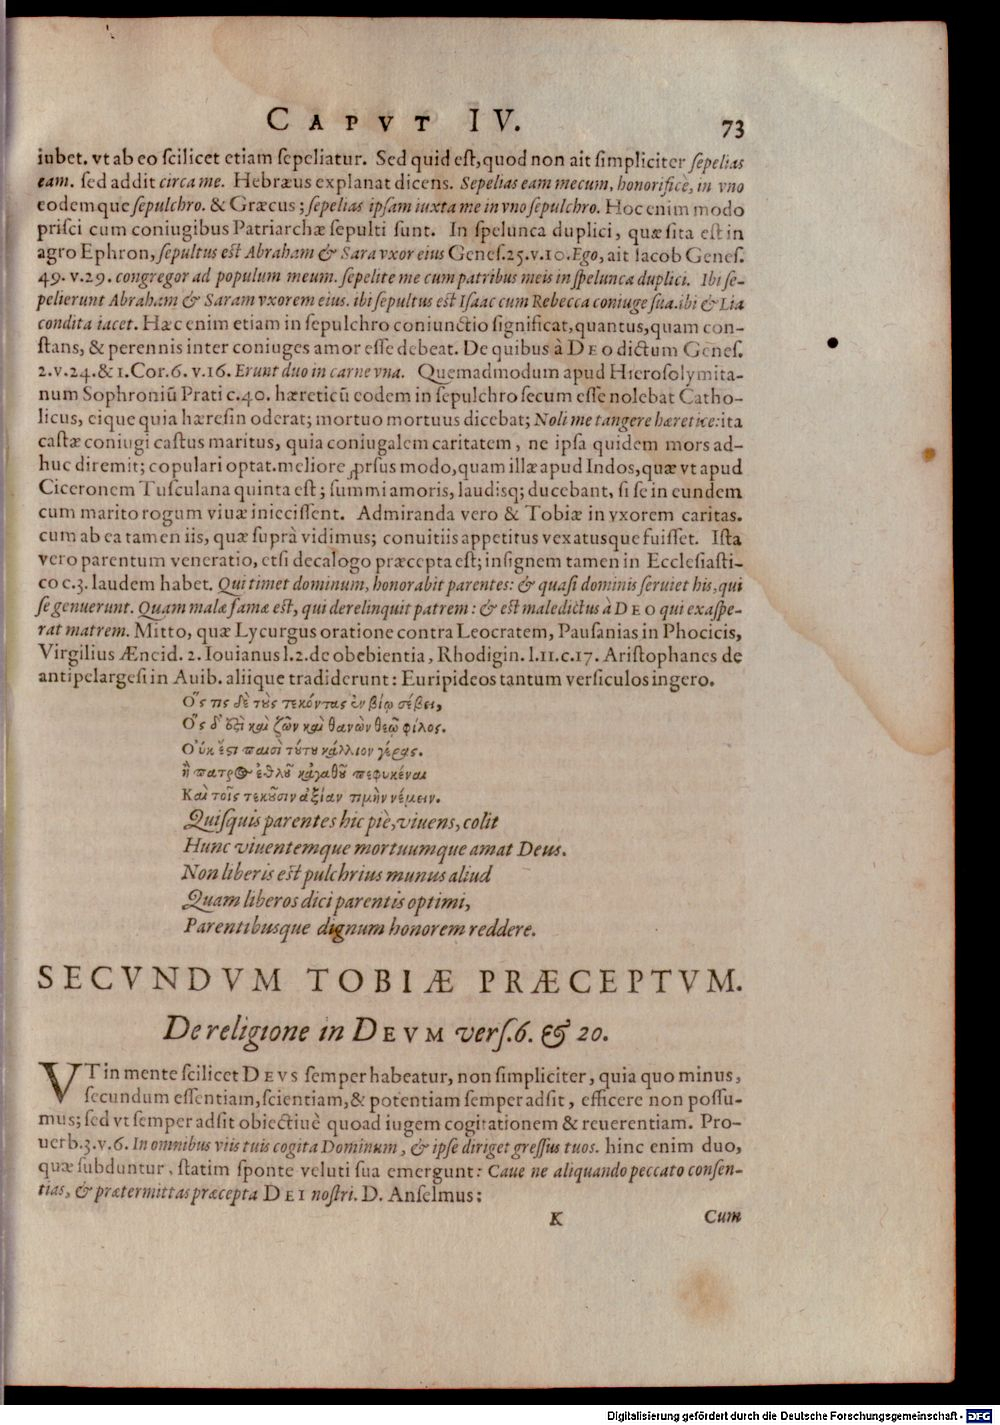 CAPVT IV. 73
iubet. vt ab eo scilicet etiam sepeliatur. Sed quid est, quod non ait simpliciter sepelias
eam. sed addit circa me. Hebræus explanat dicens. Sepelias eam mecum, honorificè, in vno
eodemque sepulchro. & Græcus; sepelias ipsam iuxta me in vno sepulchro. Hoc enim modo
prisci cum coniugibus Patriarchæ sepulti sunt. In spelunca duplici, quæ sita est in
agro Ephron, sepultus est Abraham & Sara vxor eius Genes. 25. v. 10. Ego, ait Iacob Genes.
49. v. 29. congregor ad populum meum. sepelite me cum patribus meis in spelunca duplici. Ibi se-
pelierunt Abraham & Saram vxorem eius. ibi sepultus est Isaac cum Rebecca coniuge sua. ibi & Lia
condita iacet. Hæc enim etiam in sepulchro coniunctio significat, quantus, quam con-
stans, & perennis inter coniuges amor esse debeat. De quibus à DEO dictum Genes.
2. v. 24. & 1. Cor. 6. v. 16. Erunt duo in carne vna. Quemadmodum apud Hierosolymita-
num Sophroniũ Prati c. 40. hæreticũ eodem in sepulchro secum esse nolebat Catho-
licus, eique quia hæresin oderat; mortuo mortuus dicebat; Noli me tangere hæretice: ita
castæ coniugi castus maritus, quia coniugalem caritatem, ne ipsa quidem mors ad-
huc diremit; copulari optat. meliore ꝓrsus modo, quam illæ apud Indos, quæ vt apud
Ciceronem Tusculana quinta est; summi amoris, laudisq; ducebant, si se in eundem
cum marito rogum viuæ iniecissent. Admiranda vero & Tobiæ in vxorem caritas.
cum ab ea tamen iis, quæ suprà vidimus; conuitiis appetitus vexatusque fuisset. Ista
vero parentum veneratio, etsi decalogo præcepta est; insignem tamen in Ecclesiasti-
co c. 3. laudem habet. Qui timet dominum, honorabit parentes: & quasi dominis seruiet his, qui
se genuerunt. Quam malæ famæ est, qui derelinquit patrem: & est maledictus à DEO qui exaspe-
rat matrem. Mitto, quæ Lycurgus oratione contra Leocratem, Pausanias in Phocicis,
Virgilius Æneid. 2. Iouianus l. 2. de obebientia, Rhodigin. l. 11. c. 17. Aristophanes de
antipelargesi in Auib. aliique tradiderunt: Euripideos tantum versiculos ingero.
Ὅς τις δὲ τοὺς τεκόντας ἐν βίῳ σέβει,
Ὅς δ' ἐστὶ καὶ ζῶν καὶ θανὼν θεῷ φίλος.
Οὐκ ἔστι παισὶ τούτου κάλλιον γέρας.
ἢ πατρὸς ἐσθλοῦ κἀγαθοῦ πεφυκέναι
Καὶ τοῖς τεκοῦσιν ἀξίαν τιμὴν νέμειν.
Quisquis parentes hic piè, viuens, colit
Hunc viuentemque mortuumque amat Deus.
Non liberis est pulchrius munus aliud
Quam liberos dici parentis optimi,
Parentibusque dignum honorem reddere.
SECVNDVM TOBIÆ PRÆCEPTVM.
De religione in DEVM vers. 6. & 20.
VT in mente scilicet DEVS semper habeatur, non simpliciter, quia quo minus,
secundum essentiam, scientiam, & potentiam semper adsit, efficere non possu-
mus; sed vt semper adsit obiectiuè quoad iugem cogitationem & reuerentiam. Pro-
uerb. 3. v. 6. In omnibus viis tuis cogita Dominum, & ipse diriget gressus tuos. hinc enim duo,
quæ subduntur, statim sponte veluti sua emergunt: Caue ne aliquando peccato consen-
tias, & prætermittas præcepta DEI nostri. D. Anselmus;
K Cum
Digitalisierung gefördert durch die Deutsche Forschungsgemeinschaft - DFG